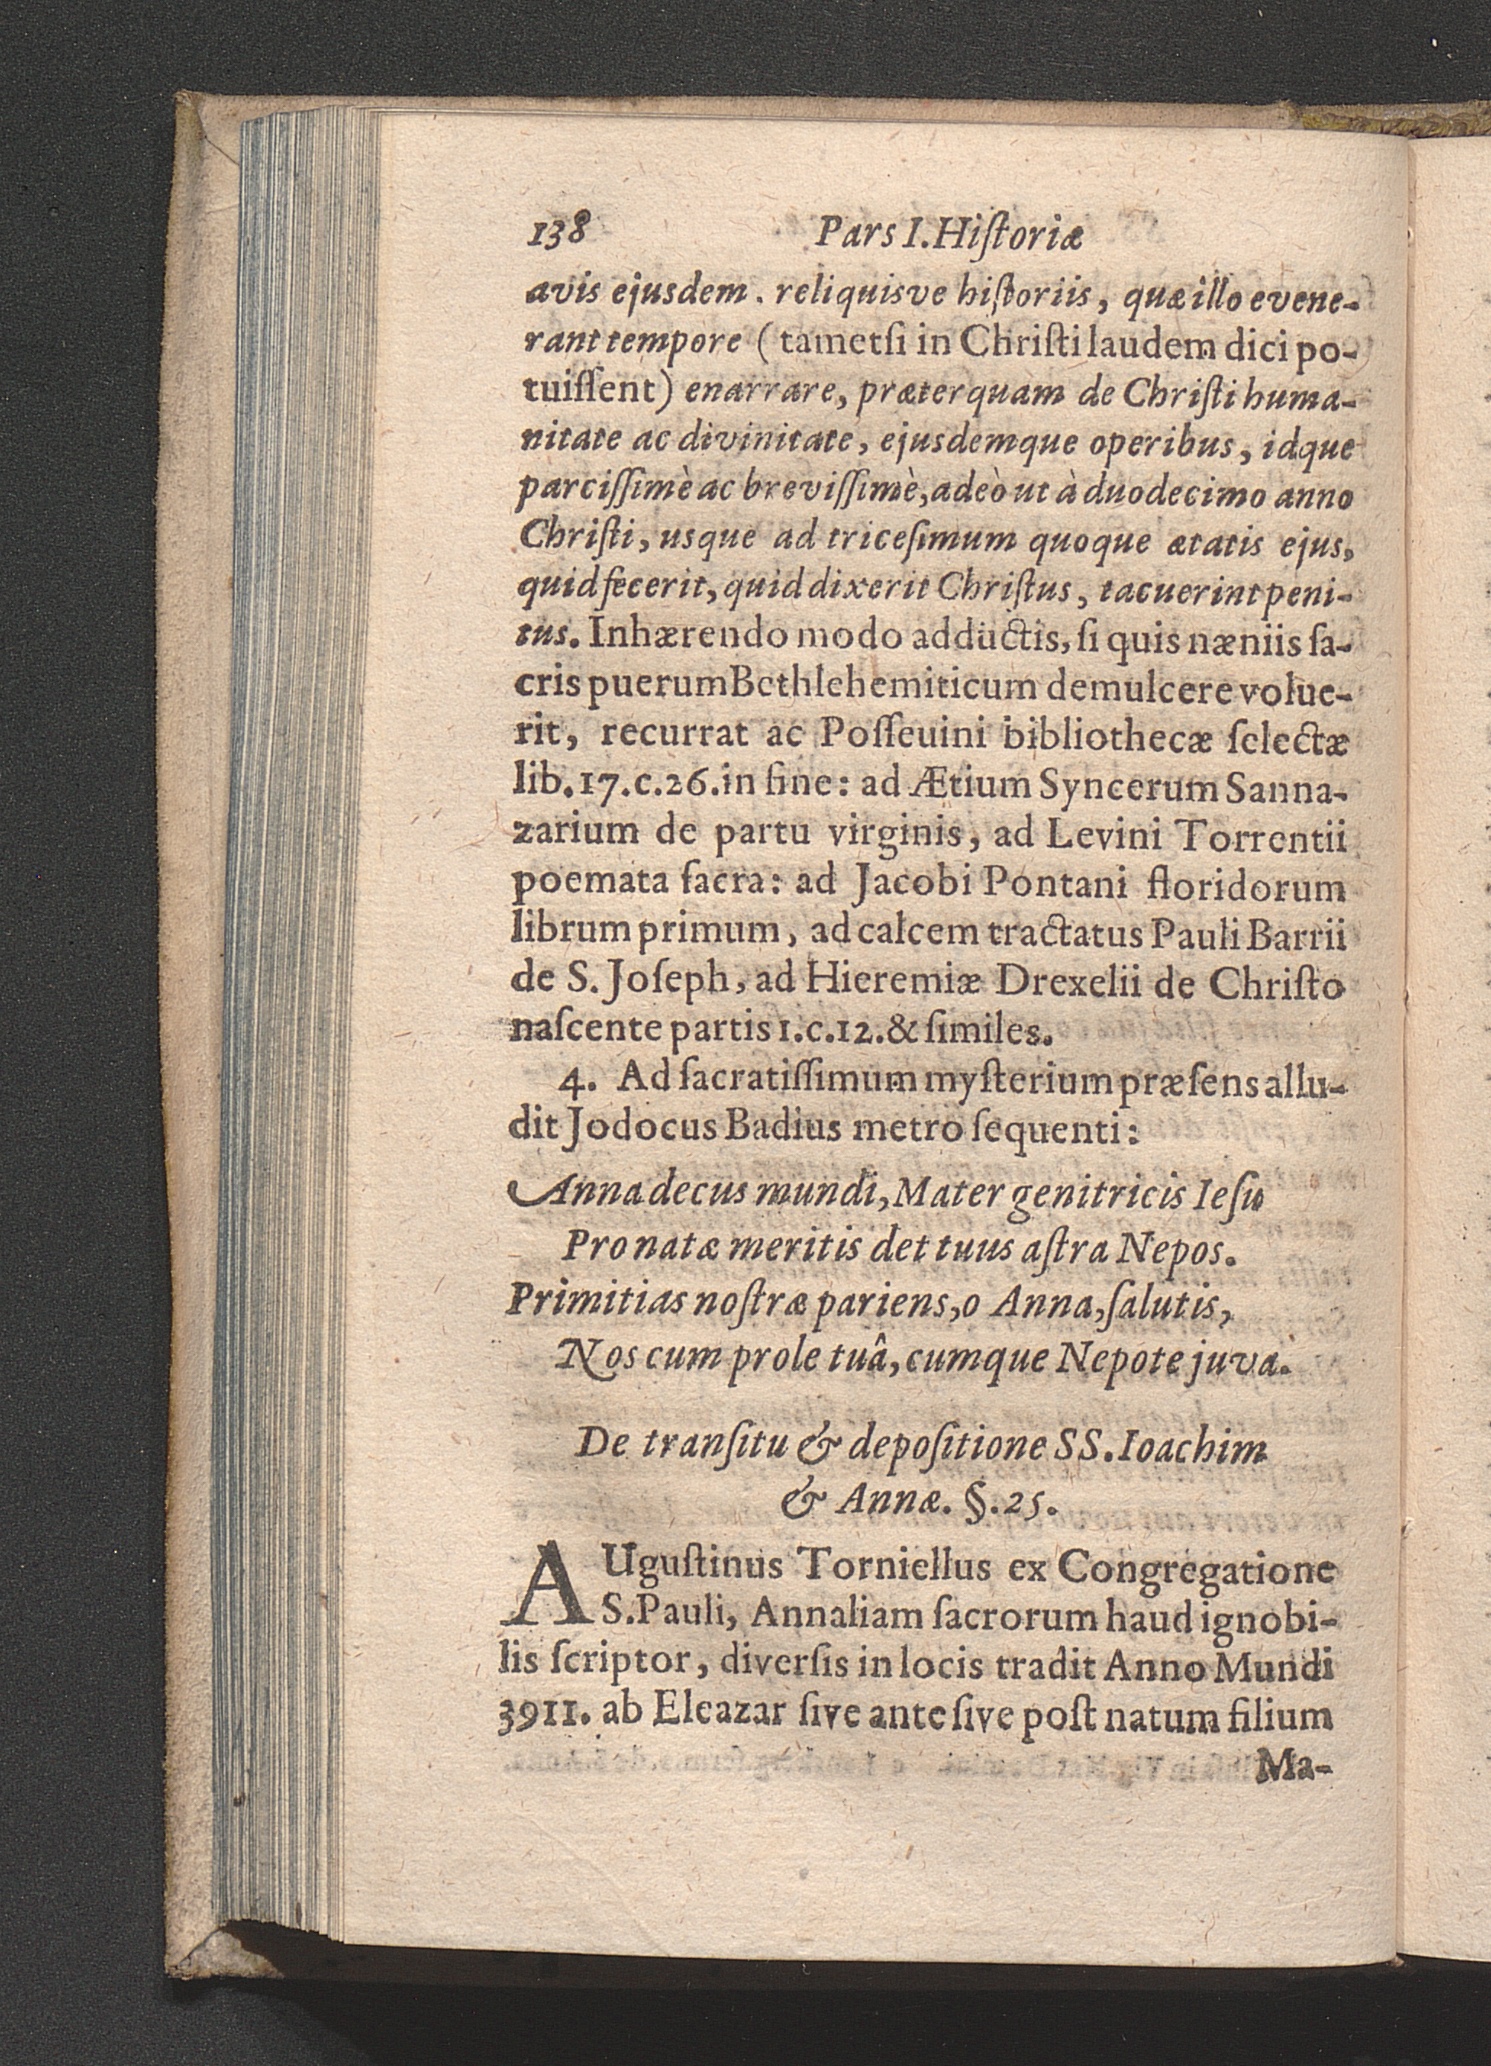 138 Pars I. Hiſtoriæ
avis ejusdem. reliquisve hiſtoriis, quæ illo evene-
rant tempore (tametſi in Chriſti laudem dici po-
tuiſſent) enarrare, præterquam de Chriſti huma-
nitate ac divinitate, ejusdemque operibus, idque
parciſſimè ac breviſſimè, adeò ut à duodecimo anno
Chriſti, usque ad triceſimum quoque ætatis ejus,
quid fecerit, quid dixerit Chriſtus, tacuerint peni-
tus. Inhærendo modo adductis, ſi quis næniis ſa-
cris puerum Bethlehemiticum demulcere volue-
rit, recurrat ac Poſſeuini bibliothecæ ſelectæ
lib. 17. c. 26. in fine: ad Ætium Syncerum Sanna-
zarium de partu virginis, ad Levini Torrentii
poemata ſacra: ad Jacobi Pontani floridorum
librum primum, ad calcem tractatus Pauli Barrii
de S. Joſeph, ad Hieremiæ Drexelii de Chriſto
naſcente partis 1. c. 12. & ſimiles.
4. Ad ſacratiſſimum myſterium præſens allu-
dit Jodocus Badius metro ſequenti:
Anna decus mundi, Mater genitricis Ieſu
Pro natæ meritis det tuus aſtra Nepos.
Primitias noſtræ pariens, o Anna, ſalutis,
Nos cum prole tuâ, cumque Nepote juva.
De tranſitu & depoſitione SS. Ioachim
& Annæ. §. 25.
AUguſtinus Torniellus ex Congregatione
S. Pauli, Annaliam ſacrorum haud ignobi-
lis ſcriptor, diverſis in locis tradit Anno Mundi
3911. ab Eleazar ſive ante ſive poſt natum filium
Ma-